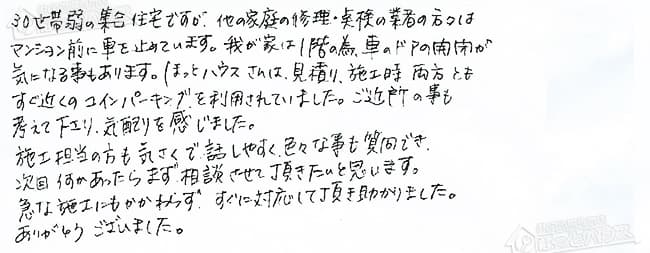 30世帯弱の集合住宅ですが、他の家庭の修理・点検の業者の方々は
マンション前に車を止めています。我が家は1階の為、車のドアの開閉が
気になる事もあります。ほっとハウスさんは、見積り、施工時 両方とも
すぐ近くのコインパーキングを利用されていました。ご近所の事も
考えて下さり、気配りを感じました。
施工担当の方も気さくで話しやすく、色々な事も質問でき、
次回何かあったらまず相談させて頂きたいと思います。
急な施工にもかかわらず、すぐに対応して頂き助かりました。
ありがとうございました。
ほっとハウス